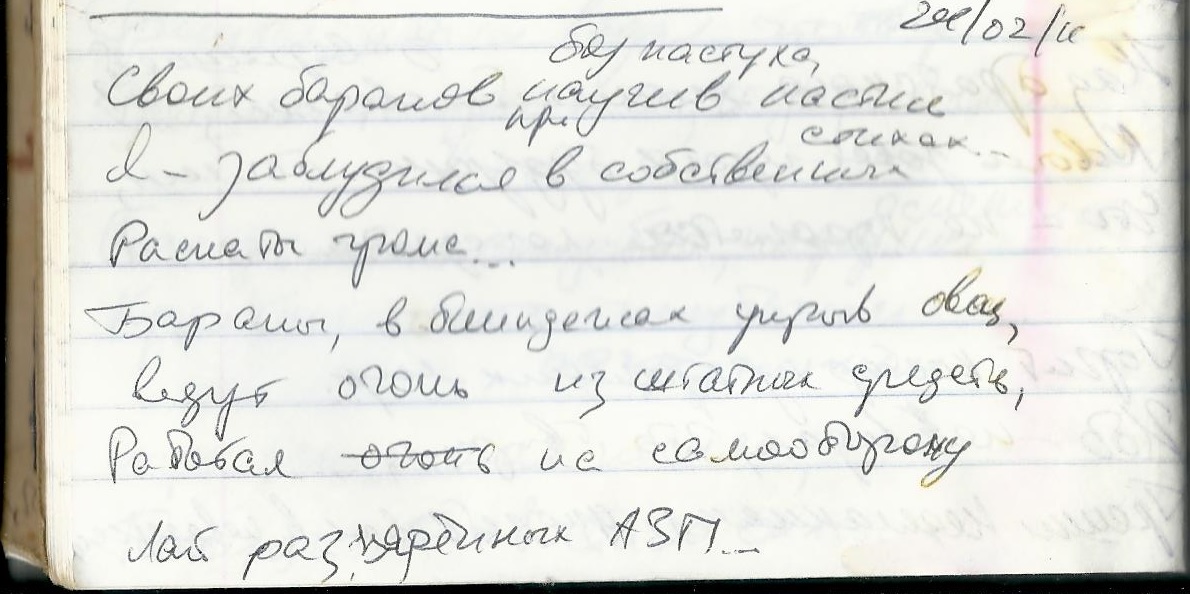 28/02/
без пастуха,
Своих баранов научив пастись
при стихах...
Я - заблудился в собственных
Раскаты грома...
Бараны, в блиндажах укрыв овец,
ведут огонь из штатных средств,
Работая огонь на самооборону
Лай разъярённых АЗП...